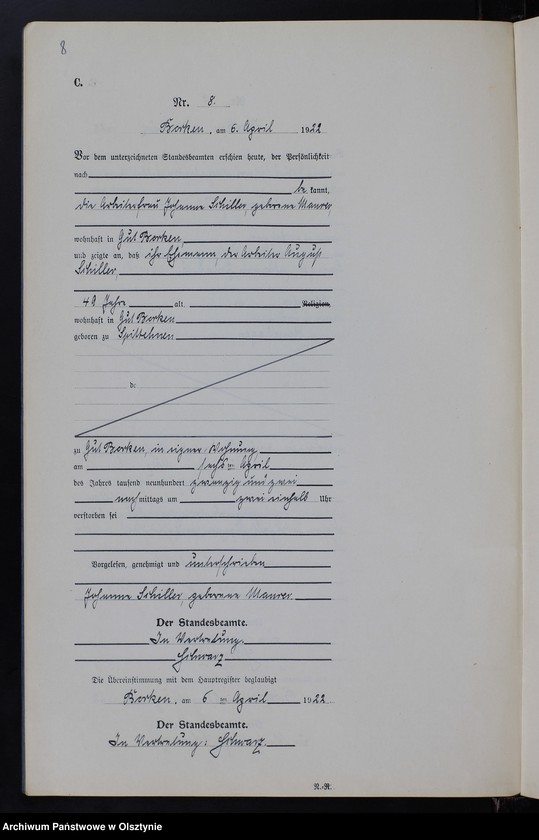 8
C.
Nr. 8.
Borken, am 6. April 1922
Vor dem unterzeichneten Standesbeamten erschien heute, der Persönlichkeit
nach
be kannt,
die Arbeiterfrau Johanne Schiller, geborene Maurer,
wohnhaft in Gut Borken,
und zeigte an, daß ihr Ehemann, der Arbeiter August
Schiller,
49 Jahre alt, Religion,
wohnhaft in Gut Borken
geboren zu Spittehnen
de
zu Gut Borken, in eigner Wohnung,
am sechsten April
des Jahres tausend neunhundert zwanzig und zwei
nachmittags um zwei einhalb Uhr
verstorben sei
Vorgelesen, genehmigt und unterschrieben
Johanne Schiller, geborene Maurer.
Der Standesbeamte.
In Vertretung.
Schwarz
Die Übereinstimmung mit dem Hauptregister beglaubigt
Borken, am 6 ten April 1922
Der Standesbeamte.
In Vertretung: Schwarz.
N.-R.
Archiwum Państwowe w Olsztynie